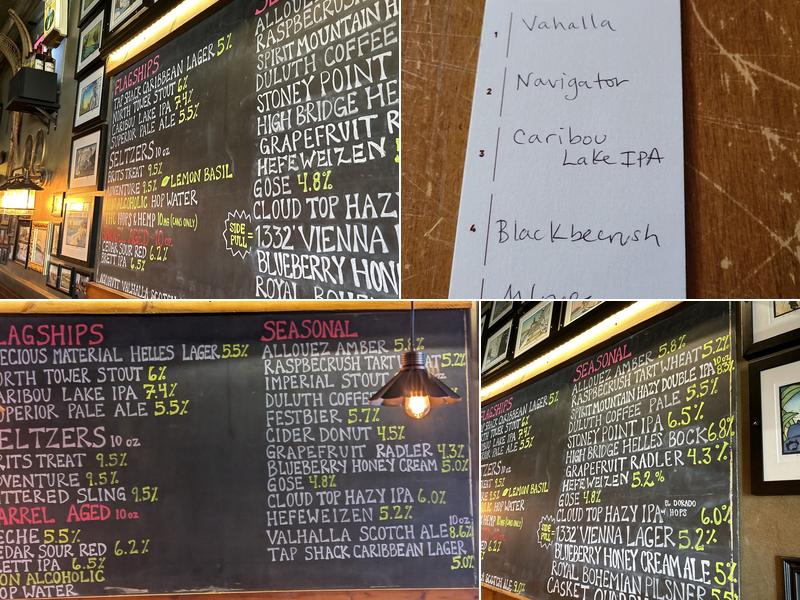 FLAGSHIPS
TAP SHACK CARIBBEAN LAGER 5%
NORTH TOWER STOUT 6%
CARIBOU LAKE IPA 7.4%
SUPERIOR PALE ALE 5.5%
SELTZERS 10 oz
BRITS TREAT 9.5%
ADVENTURE 9.5% LEMON BASIL
NON ALCOHOLIC HOP WATER
THC HOPS & HEMP 10mg (CANS ONLY)
BARREL AGED 10 oz
CEDAR SOUR RED 6.2%
BRETT IPA 6.5%
VALHALLA SCOTCH
ALLOUEZ
RASPBECRUSH
SPIRIT MOUNTAIN H
DULUTH COFFEE
STONEY POINT
HIGH BRIDGE HE
GRAPEFRUIT R
HEFEWEIZEN
GOSE 4.8%
CLOUD TOP HAZY
SIDE PULL = 1332 VIENNA
BLUEBERRY HON
ROYAL BOH
1 Vahalla
2 Navigator
3 Caribou
Lake IPA
4 Blackbecrush
LAGSHIPS
ECIOUS MATERIAL HELLES LAGER 5.5%
ORTH TOWER STOUT 6%
ARIBOU LAKE IPA 7.4%
UPERIOR PALE ALE 5.5%
ELTZERS 10 oz
RITS TREAT 9.5%
DVENTURE 9.5%
ITTERED SLING 9.5%
ARREL AGED 10 oz
ECHE 5.5%
EDAR SOUR RED 6.2%
ETT IPA 6.5%
ON ALCOHOLIC
OP WATER
SEASONAL
ALLOUEZ AMBER 5.8%
RASPBECRUSH TART 5.2%
IMPERIAL STOUT
DULUTH COFFE
FESTBIER 5.7%
CIDER DONUT 4.5%
GRAPEFRUIT RADLER 4.3%
BLUEBERRY HONEY CREAM 5.0%
GOSE 4.8%
CLOUD TOP HAZY IPA 6.0%
HEFEWEIZEN 5.2% 10 oz
VALHALLA SCOTCH ALE 8.6%
TAP SHACK CARIBBEAN LAGER
5.0%
FLAGSHIPS
CARIBBEAN LAGER 5%
STOUT 6%
LAKE IPA 7.4%
PALE ALE 5.5%
TZERS 10 oz
TREAT 9.5%
9.5% LEMON BASIL
HOP WATER
HEMP 10mg (CANS ONLY)
RED 6.2%
SCOTCH ALE 9.0%
SEASONAL
ALLOUEZ AMBER 5.8%
RASPBECRUSH TART WHEAT 5.2%
SPIRIT MOUNTAIN HAZY DOUBLE IPA 10 oz 8.5%
DULUTH COFFEE PALE 5.5%
STONEY POINT IPA 6.5%
HIGH BRIDGE HELLES BOCK 6.8%
GRAPEFRUIT RADLER 4.3%
HEFEWEIZEN 5.2%
GOSE 4.8%
CLOUD TOP HAZY IPA W/ EL DORADO HOPS 6.0%
SIDE PULL = 1332 VIENNA LAGER 5.2%
BLUEBERRY HONEY CREAM ALE 5%
ROYAL BOHEMIAN PILSNER 5.5%
CASKET